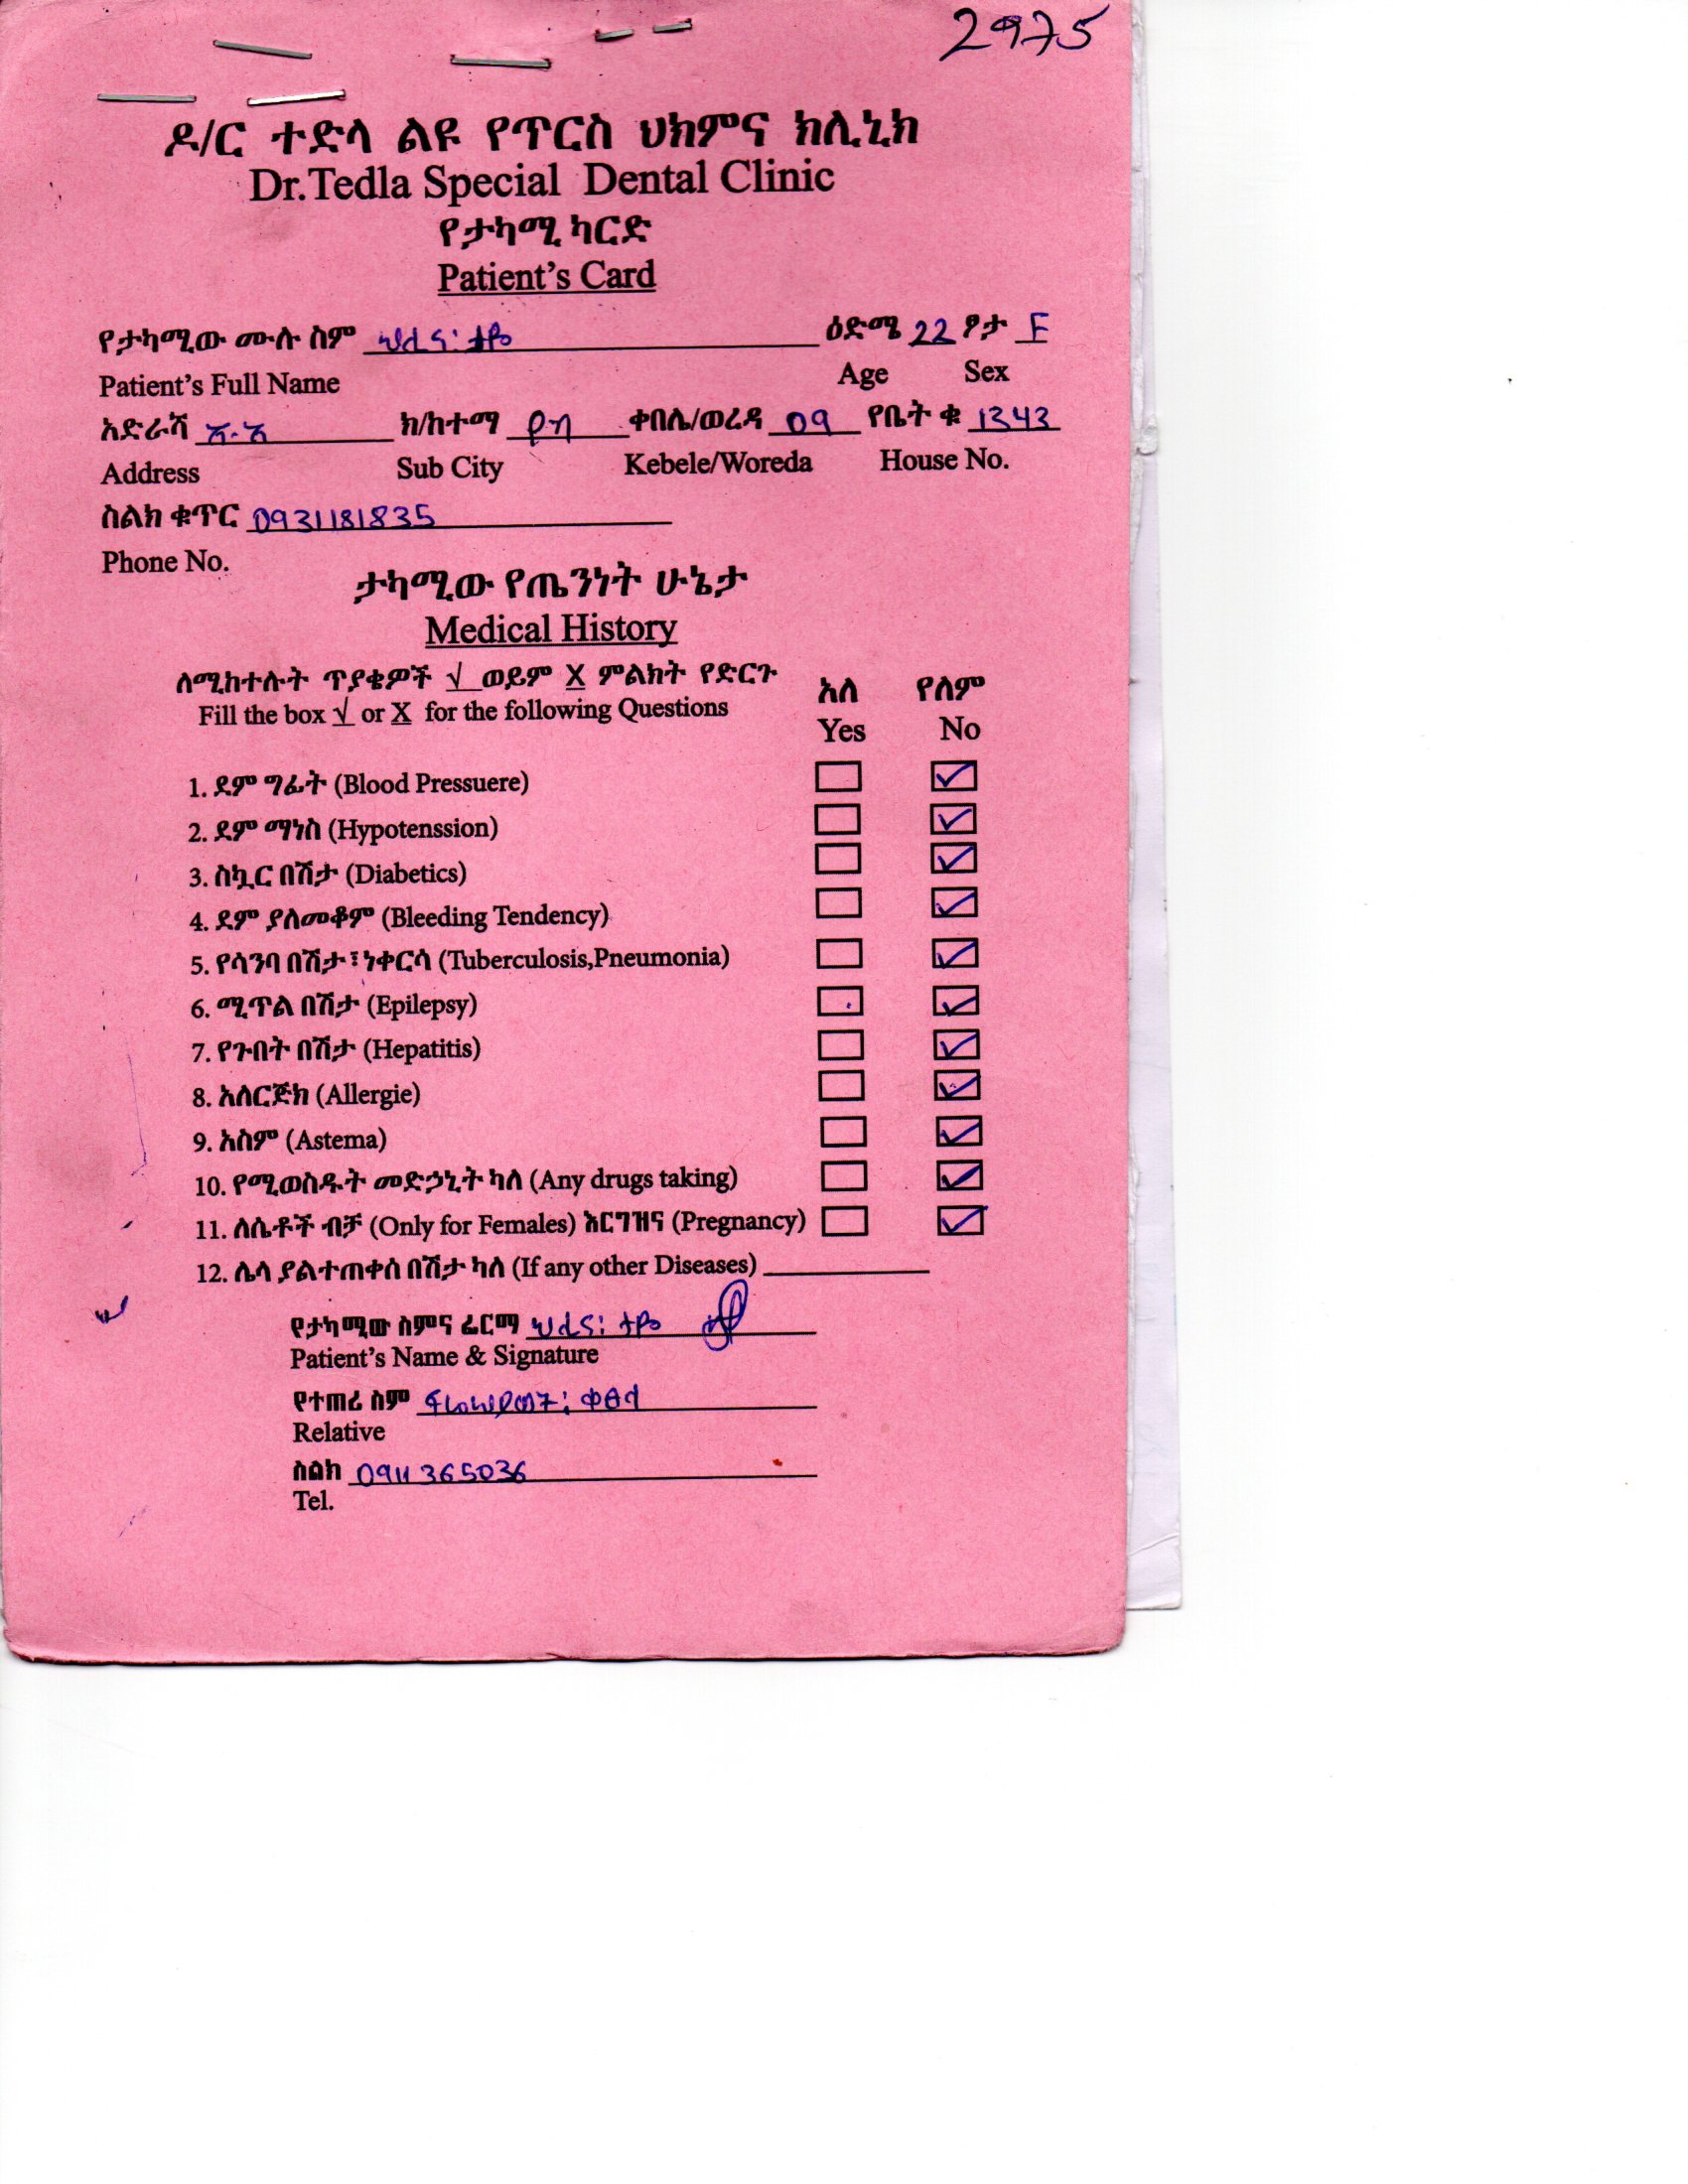 2975
ዶ/ር ተድላ ልዩ የጥርስ ህክምና ክሊኒክ
Dr.Tedla Special Dental Clinic
የታካሚ ካርድ
Patient's Card
የታካሚው ሙሉ ስም ህሊና፡ ታዬ ዕድሜ 22 ፆታ F
Patient's Full Name Age Sex
አድራሻ አ.አ ክ/ከተማ የካ ቀበሌ/ወረዳ 09 የቤት ቁ 1343
Address Sub City Kebele/Woreda House No.
ስልክ ቁጥር 0931181835
Phone No.
ታካሚው የጤንነት ሁኔታ
Medical History
ለሚከተሉት ጥያቄዎች √ ወይም X ምልክት የድርጉ አለ የለም
Fill the box √ or X for the following Questions Yes No
1. ደም ግፊት (Blood Pressuere) ✓
2. ደም ማነስ (Hypotenssion) ✓
3. ስኳር በሽታ (Diabetics) ✓
4. ደም ያለመቆም (Bleeding Tendency) ✓
5. የሳንባ በሽታ፣ነቀርሳ (Tuberculosis,Pneumonia) ✓
6. ሚጥል በሽታ (Epilepsy) ✓
7. የጉበት በሽታ (Hepatitis) ✓
8. አለርጅክ (Allergie) ✓
9. አስም (Astema) ✓
10. የሚወስዱት መድኃኒት ካለ (Any drugs taking) ✓
11. ለሴቶች ብቻ (Only for Females) እርግዝና (Pregnancy) ✓
12. ሌላ ያልተጠቀሰ በሽታ ካለ (If any other Diseases)
የታካሚው ስምና ፊርማ ህሊና፡ ታዬ
Patient's Name & Signature
የተጠሪ ስም
Relative
ስልክ 0911 365036
Tel.